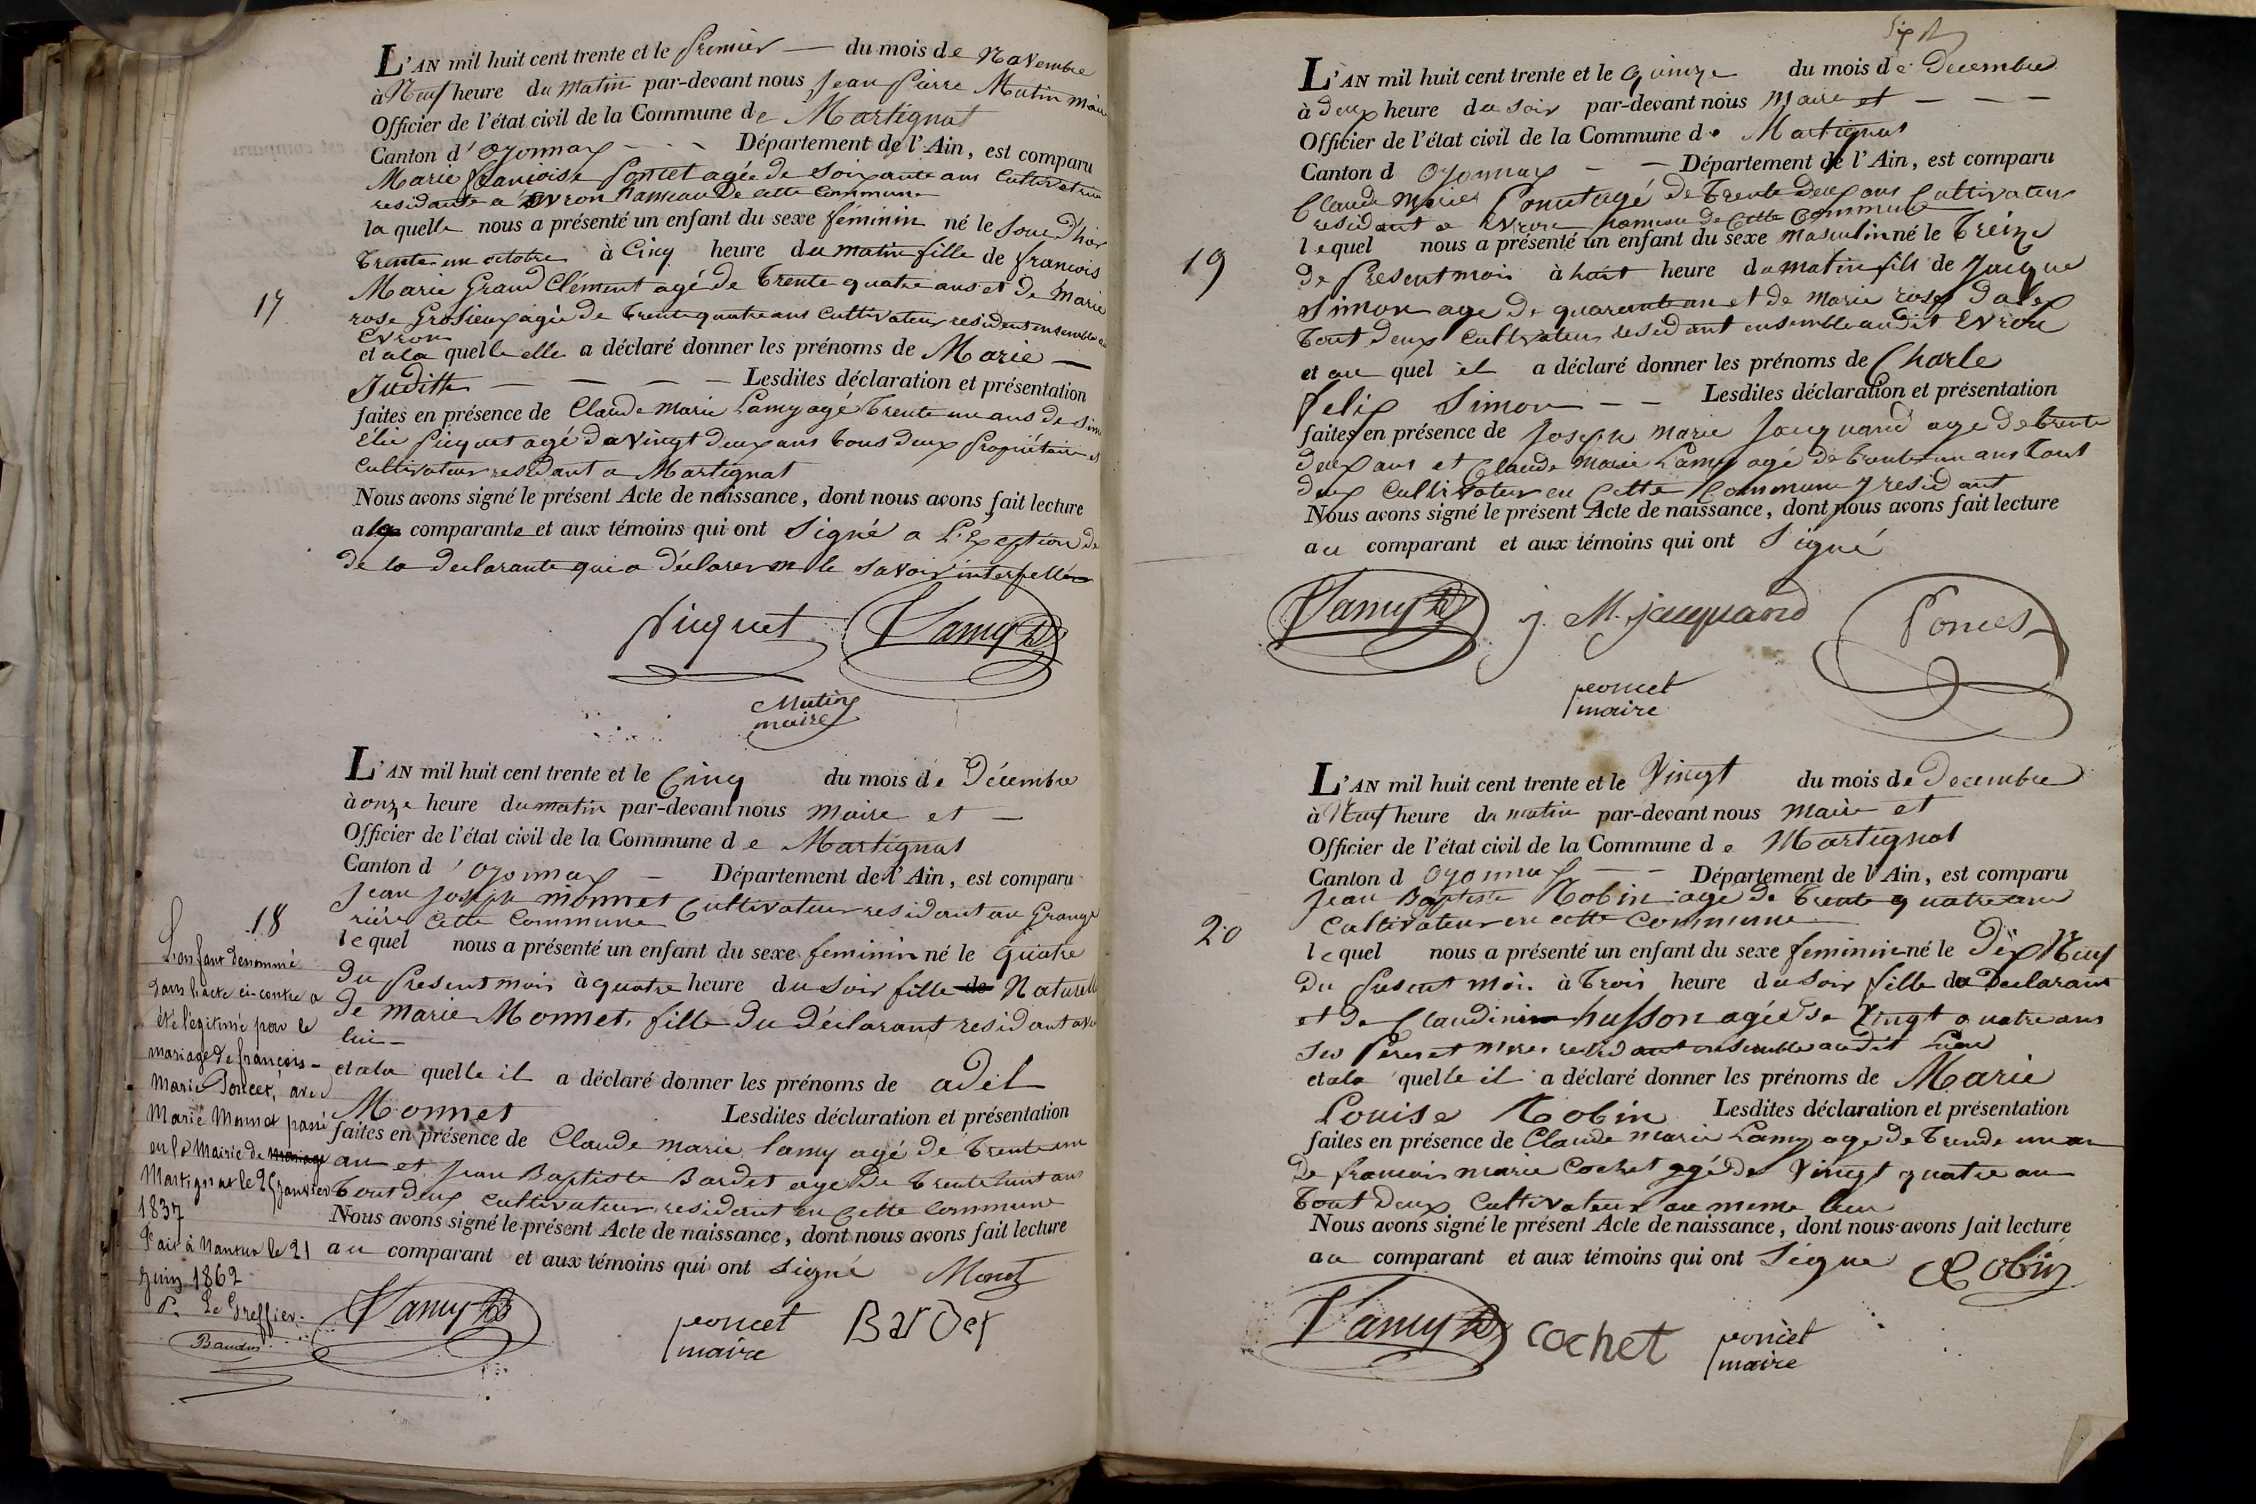 L'AN mil huit cent trente et le premier — du mois de Novembre
à Neuf heure du matin par-devant nous Jean Pierre Mutin maire
Officier de l'état civil de la Commune de Martignat
Canton d'Oyonnax - - - Département de l'Ain, est comparu
Marie françoise Poncet agée de soixante ans Cultivatrice
residante a Evron hameau de cette Commune
la quelle nous a présenté un enfant du sexe féminin né le jour d'hier
trente un octobre à Cinq heure du matin fille de françois
17
Marie Grand Clément agé de trente quatre ans et de Marie
rose Grosieux agée de trente quatre ans Cultivateur residens ensemble au
Evron
et a la quelle elle a déclaré donner les prénoms de Marie —
Judith — — — — Lesdites déclaration et présentation
faites en présence de Claude Marie Lamy agé trente un ans de Sim
élie Picquet agé de vingt deux ans tous deux Propriétaire et
Cultivateur residant a Martignat
Nous avons signé le présent Acte de naissance, dont nous avons fait lecture
a la comparante et aux témoins qui ont Signé a L'Exception de
de la declarante qui a déclarer ne le savoir interpellée
Picquet Lamy
Mutin
maire
L'AN mil huit cent trente et le Cinq du mois de Décembre
à onze heure du matin par-devant nous Maire et —
Officier de l'état civil de la Commune de Martignat
Canton d'Oyonnax — Département de l'Ain, est comparu
Jean Joseph Monnet Cultivateur residant au Grange
rière cette Commune
18
lequel nous a présenté un enfant du sexe feminin né le quatre
du present mois à quatre heure du soir fille de Naturelle
de Marie Monnet, fille du déclarant residant avec
lui —
et a la quelle il a déclaré donner les prénoms de adel
Monnet Lesdites déclaration et présentation
faites en présence de Claude Marie lamy agé de trente un
an et Jean Baptiste Bardet age de trente huit ans
tout deux cultivateur residant en Cette Commune
Nous avons signé le présent Acte de naissance, dont nous avons fait lecture
au comparant et aux témoins qui ont signé Monet
Lamy poncet maire Bardet
L'enfant dénommé
dans l'acte ci-contre a
été légitimé par le
mariage de françois-
Marie Poncet, avec
Marie Monnet passé
en la Mairie de mariage
Martignat le 25 janvier
1837
Fait à Nantua le 21
Juin 1862
P. Le Greffier.
Baudin
L'AN mil huit cent trente et le Quinze du mois de Decembre
à deux heure du soir par-devant nous Maire et — — —
Officier de l'état civil de la Commune de Martignat
Canton d Oyonnax - — Département de l'Ain, est comparu
Claude Marie Poncet agé de trente deux ans Cultivateur
residant a Evron hameau de Cette Commune
lequel nous a présenté un enfant du sexe masculin né le treize
19
de Present mois à huit heure du matin fils de Jacque
Simon age de quarante an et de Marie rose dalex
tout deux Cultivateur residant ensemble audit Evron
et au quel il a déclaré donner les prénoms de Charle
felix Simon — — Lesdites déclaration et présentation
faites en présence de Joseph Marie Jacquand age de trente
deux ans et Claude Marie Lamy agé de trente un ans tout
deux Cultivateur en Cette Commune y residant
Nous avons signé le présent Acte de naissance, dont nous avons fait lecture
au comparant et aux témoins qui ont Signé
Lamy j. M. jacquand Poncet
poncet
maire
L'AN mil huit cent trente et le Vingt du mois de Decembre
à Neuf heure du matin par-devant nous Maire et
Officier de l'état civil de la Commune de Martignat
Canton d Oyonnax — - Département de l'Ain, est comparu
Jean Baptiste Robin age de trente quatre ans
Cultivateur en cette Commune
20
lequel nous a présenté un enfant du sexe feminin né le Dix Neuf
du present moi. à trois heure du soir fille du Declarant
et de Claudine husson agée de Vingt quatre ans
ses Peres et meres residant ensemble audit Lieu
et a la quelle il a déclaré donner les prénoms de Marie
Louise Robin Lesdites déclaration et présentation
faites en présence de Claude Marie Lamy age de trende un an
de francois marie Cochet agé de Vingt quatre an
tout deux Cultivateur au meme lieu
Nous avons signé le présent Acte de naissance, dont nous avons fait lecture
au comparant et aux témoins qui ont Signe Robin
Lamy Cochet poncet
maire